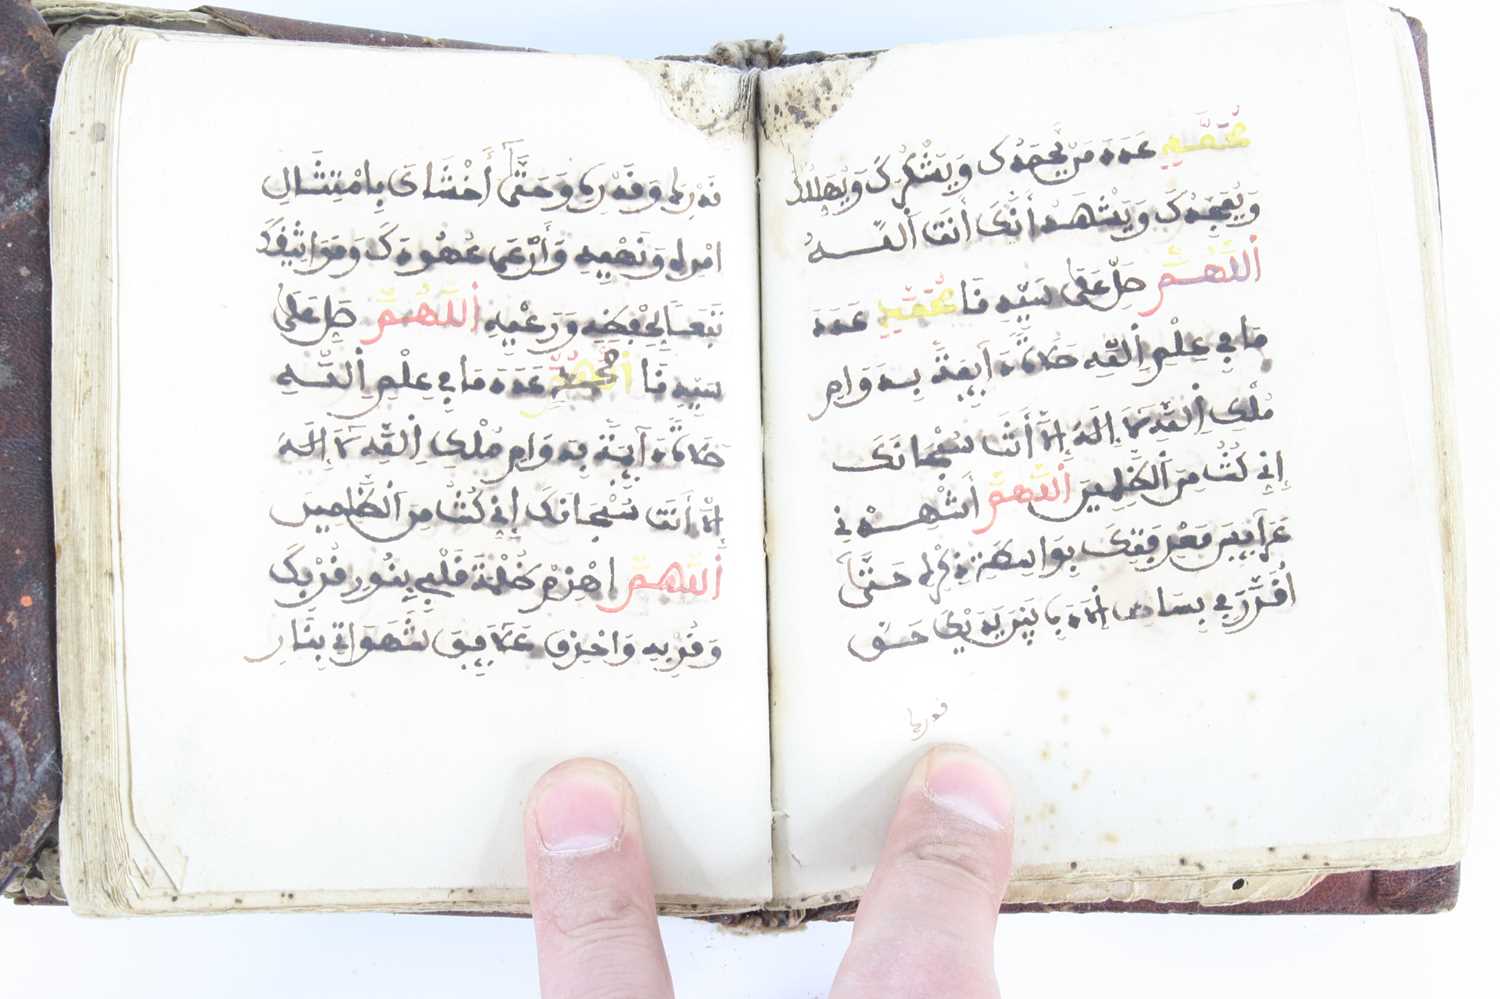 مُحَمَّدٍ عَدَدَ مَنْ يَّحْمَدُكَ وَيَشْكُرُكَ وَيُهَلِّلُكَ
وَيُمَجِّدُكَ وَيَشْهَدُ أَنَّكَ أَنتَ اَللَّهُ
اَللَّهُمَّ صَلِّ عَلَى سَيِّدِنَا مُحَمَّدٍ عَدَدَ
مَا فِي عِلْمِ اِللَّهِ صَلَاةً دَآئِمَةً بِدَوَامِ
مُلْكِ اِللَّهِ لَا إِلَهَ إِلَّا أَنتَ سُبْحَانَكَ
إِنِّي كُنتُ مِنَ اَلظَّلِمِينَ اَللَّهُمَّ أَشْهِدْنِي
عَرَآئِسَ مَعْرِفَتِكَ بِوَاسِطَةِ ذِكْرِكَ حَتَّى
حَقَّ
قدرك
قَدْرِكَ وَقَدْرِهِ وَحَتَّى أَخْشَاكَ بِامْتِثَالِ
امْرِكَ وَنَهْيِهِ وَأَرْعَى عُهُودَكَ وَمَوَاثِيقَكَ
وَرَعْيِهِ اَللَّهُمَّ صَلِّ عَلَى
سَيِّدِنَا مُحَمَّدٍ عَدَدَ مَا فِي عِلْمِ اِللَّهِ
صَلَاةً دَآئِمَةً بِدَوَامِ مُلْكِ اِللَّهِ لَا إِلَهَ
إِلَّا أَنتَ سُبْحَانَكَ إِنِّي كُنتُ مِنَ اَلظَّلِمِينَ
اَللَّهُمَّ اهْزِمْ ظُلْمَةَ قَلْبِي بِنُورِ قُرْبِكَ
وَقُرْبِهِ وَاحْرِقْ عَلَآئِقَ شَهَوَاتِي بِنَارِ